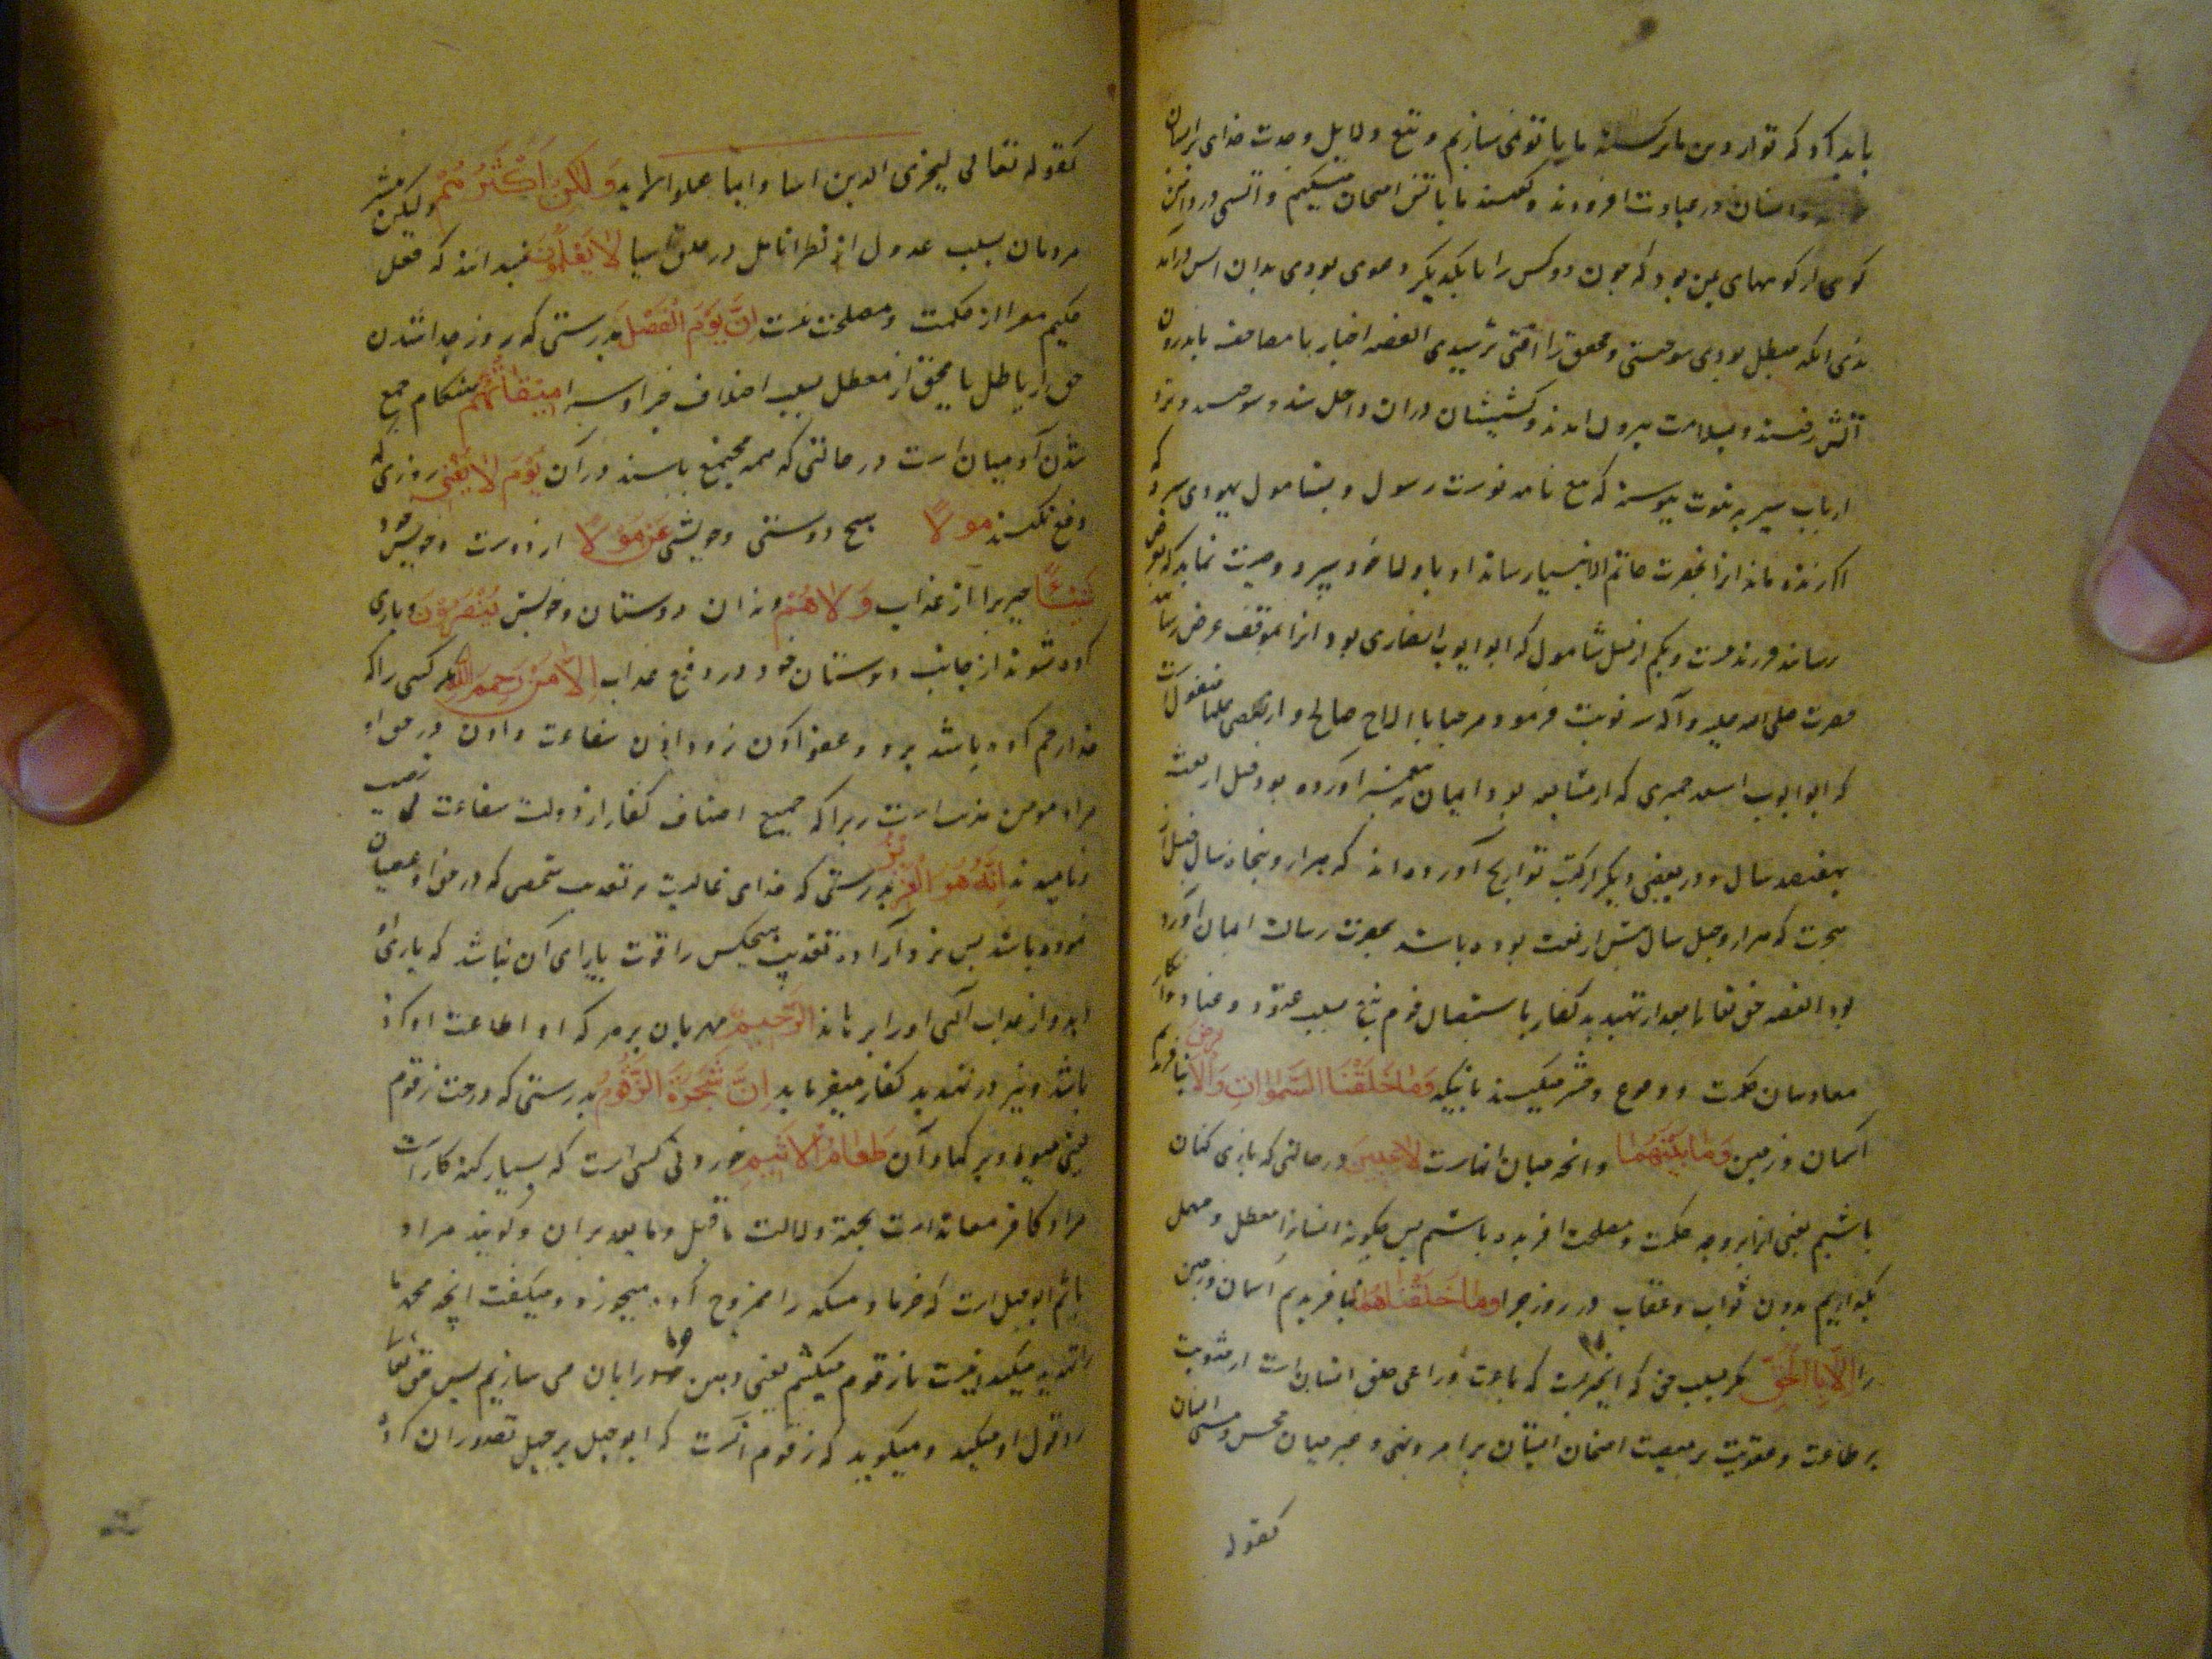 باید کرد که تو از دین ما برگشته ما با تو نمی سازیم و تبع دلایل وحدت خدای بر ایشان
و ایشان در عبادت افزودند و گفتند ما باتش امتحان میکنیم و آتشی در دامن
کوهی از کوههای یمن بود که چون دو کس را با یکدیگر دعوی بودی بدان آتش درآمد
ندی آنکه مبطل بودی سوختی و محق را آفتی نرسیدی القصه احبار با مصاحف باندرون
آتش رفتند و بسلامت بیرون آمدند و کشیشان در آن داخل شدند و سوختند و نزد
ارباب سیر به ثبوت پیوسته که تبع نامه نوشت برسول و بشامول یهودی سپرد که
اگر زنده ماند انرا بحضرت خاتم الانبیا رساند او باولاد خود سپرد و وصیت نماید که بعرض
رساند فرزند بیست و یکم از نسل شامول که ابو ایوب انصاری بود انرا بموقف عرض رساند
حضرت صلی الله علیه و آله سه نوبت فرمود مرحبا بالاخ صالح و از بعضی علما منقولست
که ابو ایوب اسعد حمیری که از تبابعه بود ایمان به پیغمبر آورده بود قبل از بعثت
بهفتصد سال و در بعضی دیگر از کتب تواریخ آورده اند که هزار و پنجاه سال قبل از
هجرت که هزار و چهل سال پیش از بعثت بوده باشد بحضرت رسالت ایمان آورده
بود القصه حق تعالی بعد از تهدید کفار باستیصال قوم تبع بسبب عتو و عناد و انکار
معاد بیان حکمت و وقوع حشر میکند باینکه وَمَا خَلَقْنَا السَّمٰوَاتِ وَالْاَرْضَ نیافریدیم
آسمان و زمین وَمَا بَيْنَهُمَا و آنچه میان آنهاست لَاعِبِينَ در حالتی که بازی کنان
باشیم یعنی انها بر وجه حکمت و مصلحت آفریده باشیم پس چگونه انسانرا معطل و مهمل
بگذاریم بدون ثواب و عقاب در روز جزا وَمَا خَلَقْنَاهُمَا نیافریدیم آسمان و زمین
را اِلَّا بِالْحَقِّ مگر بسبب حق که آنچیزیست که باعث و داعی خلق ایشان است از مثوبت
بر طاعت و عقوبت بر معصیت امتحان ایشان بر امر و نهی و تمییز میان محسن و مسی ایشان
کقوله
کقوله تعالی لیجزی الذین اساوا بما عملوا الایه وَلٰكِنَّ اَكْثَرَهُمْ و لیکن بیشتر
مردمان بسبب عدول از نظر و تامل در خلق اشیا لَا يَعْلَمُونَ نمیدانند که فعل
حکیم معرا از حکمت و مصلحت نیست اِنَّ يَوْمَ الْفَصْلِ بدرستی که روز جدا شدن
حق از باطل یا محق از مبطل بسبب اختلاف جزا و سزا مِيقَاتُهُمْ هنگام جمع
شدن آدمیان است در حالتی که همه مجتمع باشند در آن يَوْمَ لَا يُغْنِي روزی که
دفع نکند مَوْلًا هیچ دوستی و خویشی عَنْ مَوْلًا از دوست و خویش خود
شَيْئًا چیزی را از عذاب وَلَا هُمْ و نه آن دوستان و خویش يُنْصَرُونَ یاری
کرده شوند از جانب دوستان خود در دفع عذاب اِلَّا مَنْ رَحِمَ اللّٰهُ مگر کسی را که
خدا رحم کرده باشد برو و عفو کردن ازو و اذن شفاعت دادن در حق او
مراد مومن مذنب است زیرا که جمیع اصناف کفار از دولت شفاعت بی نصیب
و نا امیدند اِنَّهُ هُوَ الْعَزِيزُ بدرستی که خدای غالبست بر تعذیب شخصی که در حق او عصیان
نموده باشد پس نزد اراده تعذیب هیچکس را قوت یارای آن نباشد که یاری
دهد و از عذاب الهی او را برهاند الرَّحِيمُ مهربان بر هر که او اطاعت او کرده
باشد و نیز در تهدید کفار میفرماید اِنَّ شَجَرَةَ الزَّقُّومِ بدرستی که درخت زقوم
یعنی میوه و بر گیاه آن طَعَامُ الْاَثِيمِ خوردنی کسی است که بسیار گنه کار است
مراد کافر معاند است بجهة دلالت ماقبل و ما بعد بر آن و گویند مراد
باثم ابو جهل است که خرما و مسکه را ممزوج کرده میخورد و میگفت آنچه محمد ما
را تهدید میکند اینست ما زقوم میکنیم یعنی دهن خود را بآن می سازیم پس حق تعالی
رد قول او میکند و میگوید که زقوم آنست که ابو جهل بر جهل تصور آن کرده